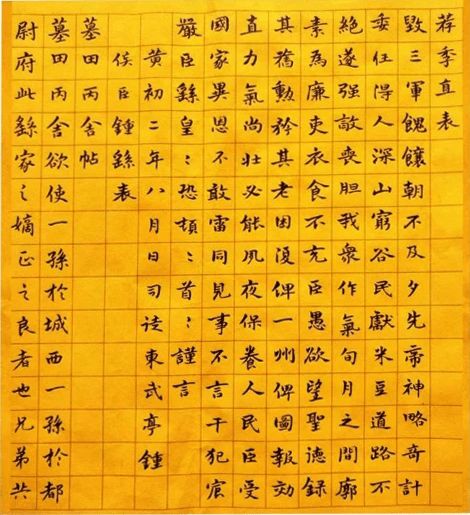 荐季直表
毀三軍餽饟朝不及夕先帝神略奇計
委任得人深山窮谷民獻米豆道路不
絕遂强敵喪胆我衆作氣旬月之間廓
素為廉吏衣食不充臣愚欲望聖德錄
其舊勳矜其老困復俾一州俾圖報効
直力氣尚壯必能夙夜保養人民臣受
國家異恩不敢雷同見事不言干犯宸
嚴臣繇皇〻恐頓〻首〻謹言
黄初二年八月日司徒東武亭鍾
侯臣鍾繇表
墓田丙舍帖
墓田丙舍欲使一孫於城西一孫於都
尉府此繇家之嫡正之良者也兄弟共